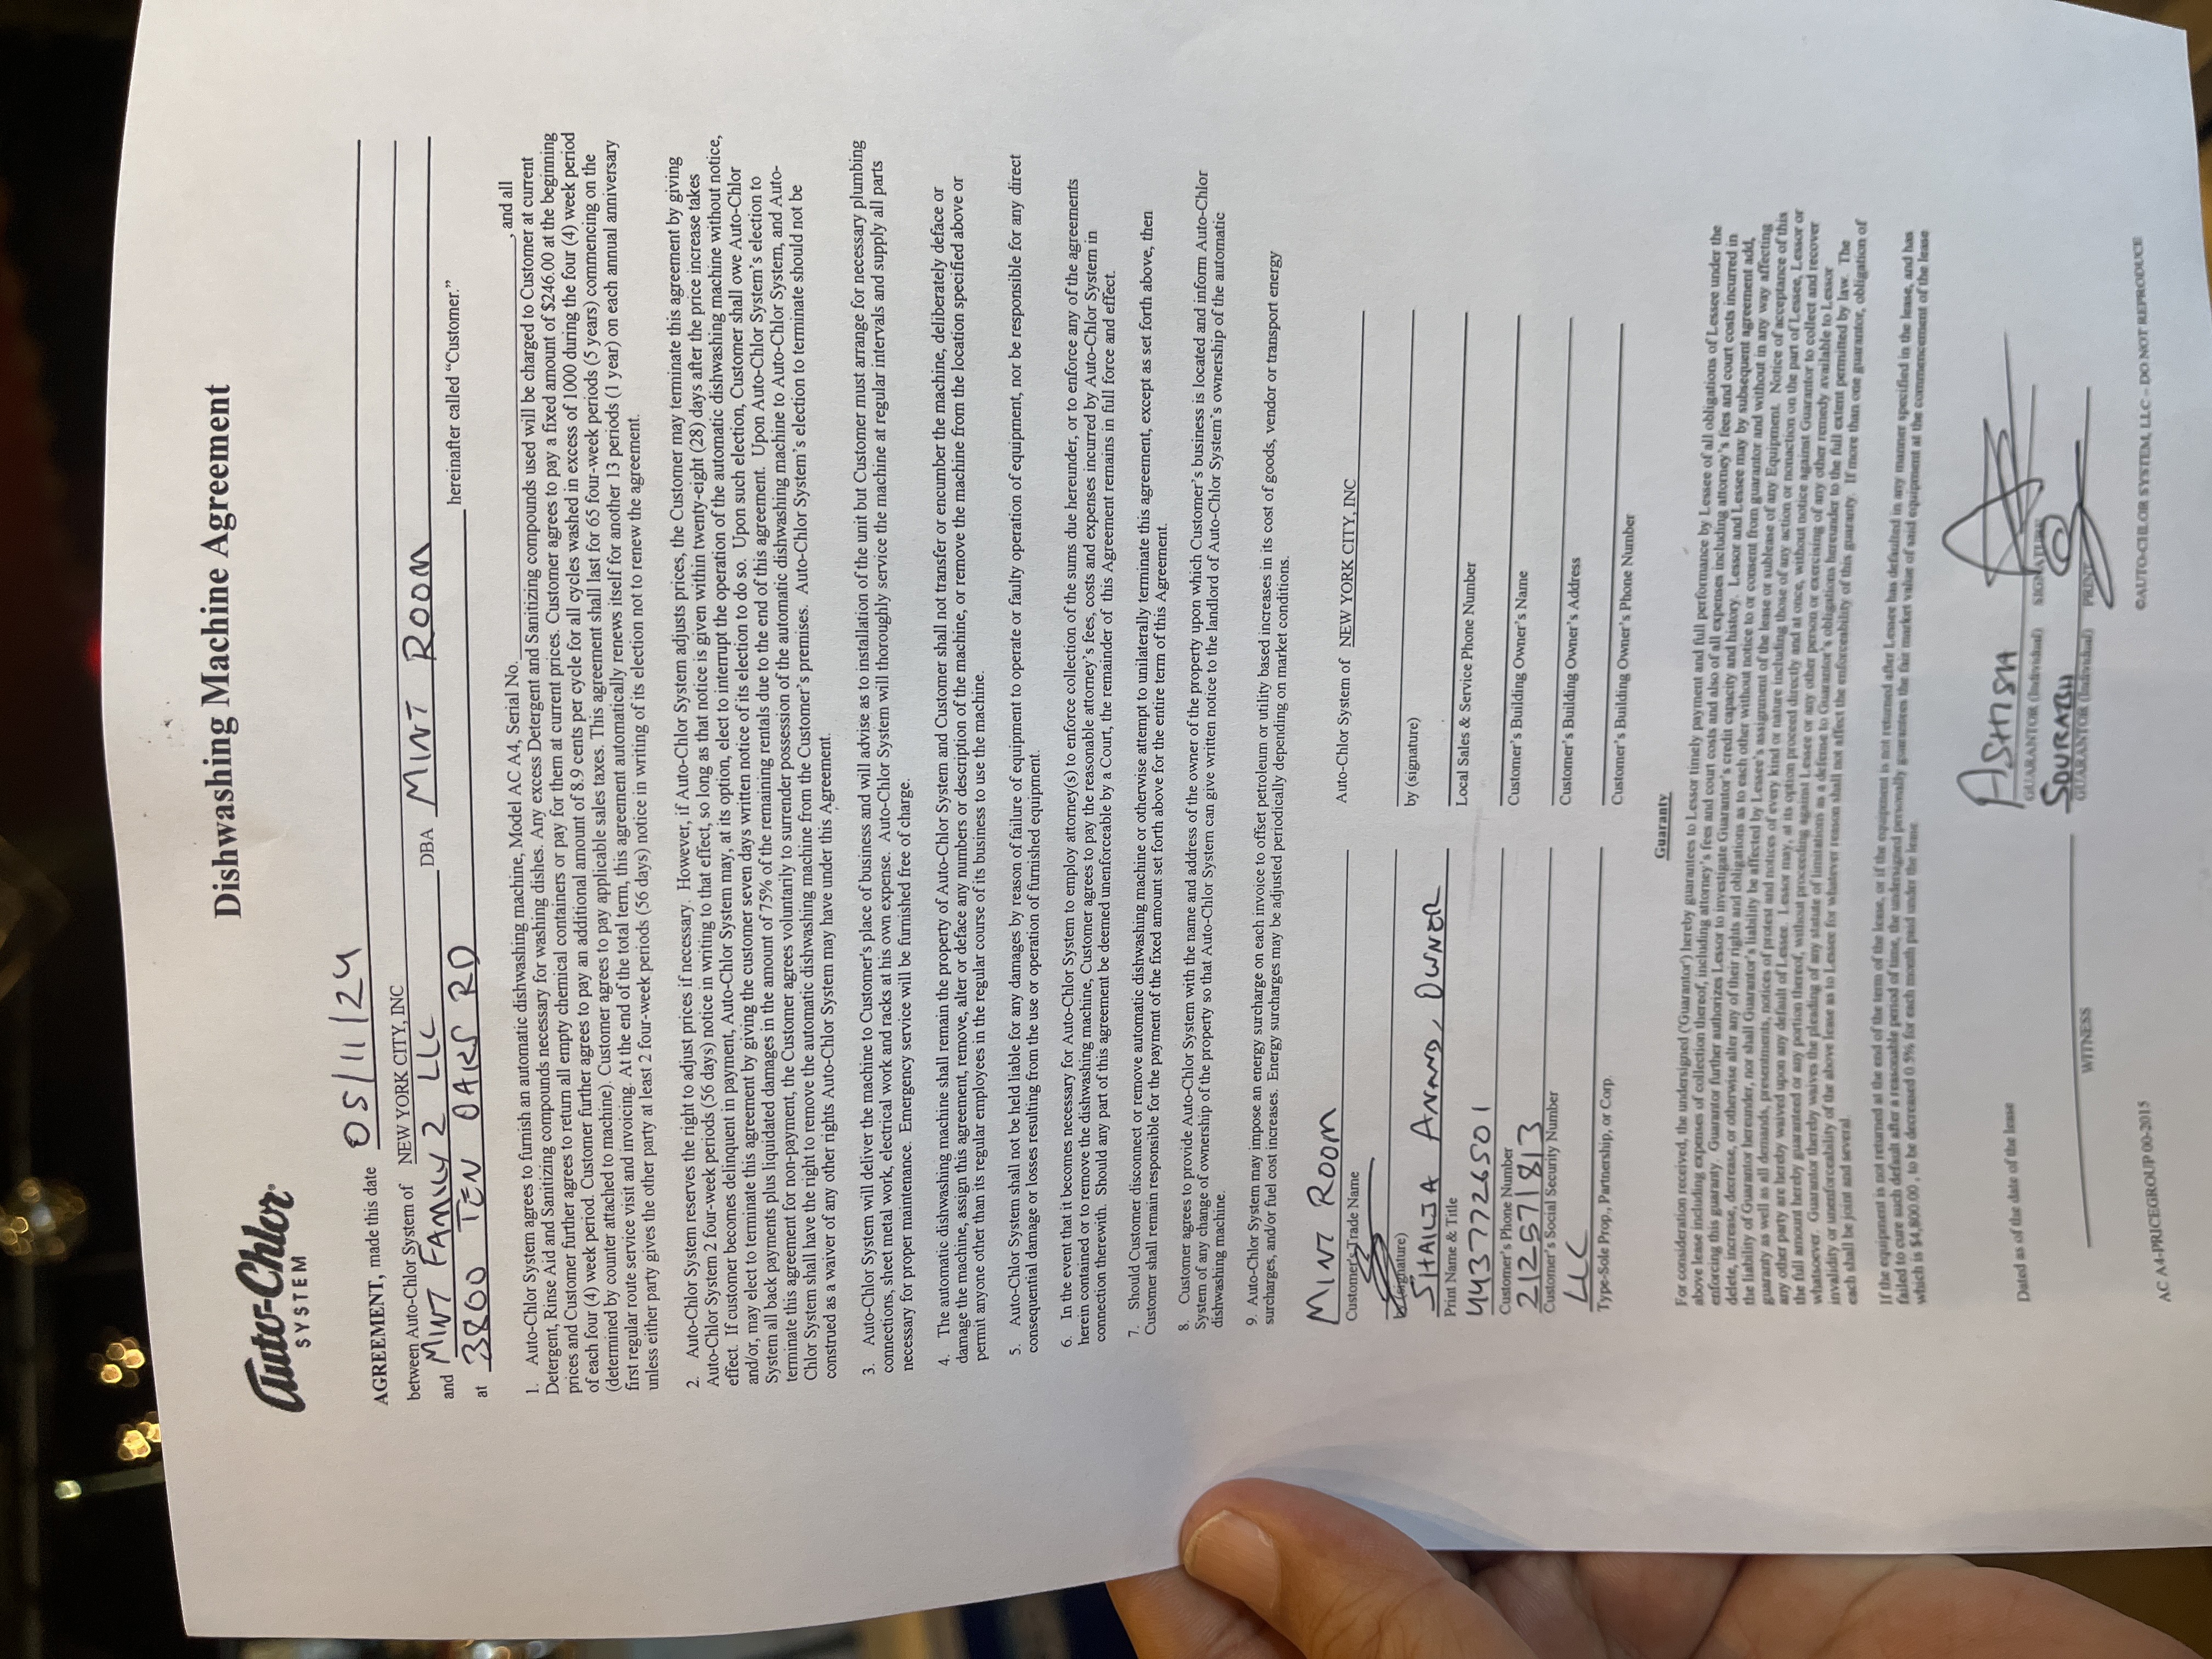 Dishwashing Machine Agreement
Auto-Chlor
SYSTEM
AGREEMENT, made this date 05/11/24
between Auto-Chlor System of NEW YORK CITY, INC
and MINT FAMILY 2 LLC DBA MINT ROOM
at 3800 TEN OAKS RD hereinafter called “Customer.”
1. Auto-Chlor System agrees to furnish an automatic dishwashing machine, Model AC A4, Serial No. , and all
Detergent, Rinse Aid and Sanitizing compounds necessary for washing dishes. Any excess Detergent and Sanitizing compounds used will be charged to Customer at current
prices and Customer further agrees to return all empty chemical containers or pay for them at current prices. Customer agrees to pay a fixed amount of $246.00 at the beginning
of each four (4) week period. Customer further agrees to pay an additional amount of 8.9 cents per cycle for all cycles washed in excess of 1000 during the four (4) week period
(determined by counter attached to machine). Customer agrees to pay applicable sales taxes. This agreement shall last for 65 four-week periods (5 years) commencing on the
first regular route service visit and invoicing. At the end of the total term, this agreement automatically renews itself for another 13 periods (1 year) on each annual anniversary
unless either party gives the other party at least 2 four-week periods (56 days) notice in writing of its election not to renew the agreement.
2. Auto-Chlor System reserves the right to adjust prices if necessary. However, if Auto-Chlor System adjusts prices, the Customer may terminate this agreement by giving
Auto-Chlor System 2 four-week periods (56 days) notice in writing to that effect, so long as that notice is given within twenty-eight (28) days after the price increase takes
effect. If customer becomes delinquent in payment, Auto-Chlor System may, at its option, elect to interrupt the operation of the automatic dishwashing machine without notice,
and/or, may elect to terminate this agreement by giving the customer seven days written notice of its election to do so. Upon such election, Customer shall owe Auto-Chlor
System all back payments plus liquidated damages in the amount of 75% of the remaining rentals due to the end of this agreement. Upon Auto-Chlor System’s election to
terminate this agreement for non-payment, the Customer agrees voluntarily to surrender possession of the automatic dishwashing machine to Auto-Chlor System, and Auto-
Chlor System shall have the right to remove the automatic dishwashing machine from the Customer’s premises. Auto-Chlor System’s election to terminate should not be
construed as a waiver of any other rights Auto-Chlor System may have under this Agreement.
3. Auto-Chlor System will deliver the machine to Customer's place of business and will advise as to installation of the unit but Customer must arrange for necessary plumbing
connections, sheet metal work, electrical work and racks at his own expense. Auto-Chlor System will thoroughly service the machine at regular intervals and supply all parts
necessary for proper maintenance. Emergency service will be furnished free of charge.
4. The automatic dishwashing machine shall remain the property of Auto-Chlor System and Customer shall not transfer or encumber the machine, deliberately deface or
damage the machine, assign this agreement, remove, alter or deface any numbers or description of the machine, or remove the machine from the location specified above or
permit anyone other than its regular employees in the regular course of its business to use the machine.
5. Auto-Chlor System shall not be held liable for any damages by reason of failure of equipment to operate or faulty operation of equipment, nor be responsible for any direct
consequential damage or losses resulting from the use or operation of furnished equipment.
6. In the event that it becomes necessary for Auto-Chlor System to employ attorney(s) to enforce collection of the sums due hereunder, or to enforce any of the agreements
herein contained or to remove the dishwashing machine, Customer agrees to pay the reasonable attorney’s fees, costs and expenses incurred by Auto-Chlor System in
connection therewith. Should any part of this agreement be deemed unenforceable by a Court, the remainder of this Agreement remains in full force and effect.
7. Should Customer disconnect or remove automatic dishwashing machine or otherwise attempt to unilaterally terminate this agreement, except as set forth above, then
Customer shall remain responsible for the payment of the fixed amount set forth above for the entire term of this Agreement.
8. Customer agrees to provide Auto-Chlor System with the name and address of the owner of the property upon which Customer’s business is located and inform Auto-Chlor
System of any change of ownership of the property so that Auto-Chlor System can give written notice to the landlord of Auto-Chlor System’s ownership of the automatic
dishwashing machine.
9. Auto-Chlor System may impose an energy surcharge on each invoice to offset petroleum or utility based increases in its cost of goods, vendor or transport energy
surcharges, and/or fuel cost increases. Energy surcharges may be adjusted periodically depending on market conditions.
MINT ROOM
Customer's Trade Name
by (signature)
SHAILJA ANAND, OWNER
Print Name & Title
4437726501
Customer’s Phone Number
212571813
Customer’s Social Security Number
LLC
Type-Sole Prop., Partnership, or Corp.
Auto-Chlor System of NEW YORK CITY, INC
by (signature)
Local Sales & Service Phone Number
Customer’s Building Owner’s Name
Customer’s Building Owner’s Address
Customer’s Building Owner’s Phone Number
Guaranty
For consideration received, the undersigned ('Guarantor') hereby guarantees to Lessor timely payment and full performance by Lessee of all obligations of Lessee under the
above lease including expenses of collection thereof, including attorney’s fees and court costs and also of all expenses including attorney’s fees and court costs incurred in
enforcing this guaranty. Guarantor further authorizes Lessor to investigate Guarantor’s credit capacity and history. Lessor and Lessee may by subsequent agreement add,
delete, increase, decrease, or otherwise alter any of their rights and obligations as to each other without notice to or consent from guarantor and without in any way affecting
the liability of Guarantor hereunder, nor shall Guarantor’s liability be affected by Lessee’s assignment of the lease or sublease of any Equipment. Notice of acceptance of this
guaranty as well as all demands, presentments, notices of protest and notices of every kind or nature including those of any action or nonaction on the part of Lessee, Lessor or
any other party are hereby waived upon any default of Lessee. Lessor may, at its option proceed directly and at once, without notice against Guarantor to collect and recover
the full amount hereby guaranteed or any portion thereof, without proceeding against Lessee or any other person or exercising of any other remedy available to Lessor
whatsoever. Guarantor thereby waives the pleading of any statute of limitations as a defense to Guarantor’s obligations hereunder to the full extent permitted by law. The
invalidity or unenforceability of the above lease as to Lessee for whatever reason shall not affect the enforceability of this guaranty. If more than one guarantor, obligation of
each shall be joint and several.
If the equipment is not returned at the end of the term of the lease, or if the equipment is not returned after Lessee has defaulted in any manner specified in the lease, and has
failed to cure such default after a reasonable period of time, the undersigned personally guarantees the fair market value of said equipment at the commencement of the lease
which is $4,800.00 , to be decreased 0.5% for each month paid under the lease.
Dated as of the date of the lease
ASHISH
GUARANTOR (Individual) SIGNATURE
SOURABH
GUARANTOR (Individual) PRINT
WITNESS
AC A4-PRICEGROUP 00-2015
©AUTO-CHLOR SYSTEM, LLC – DO NOT REPRODUCE